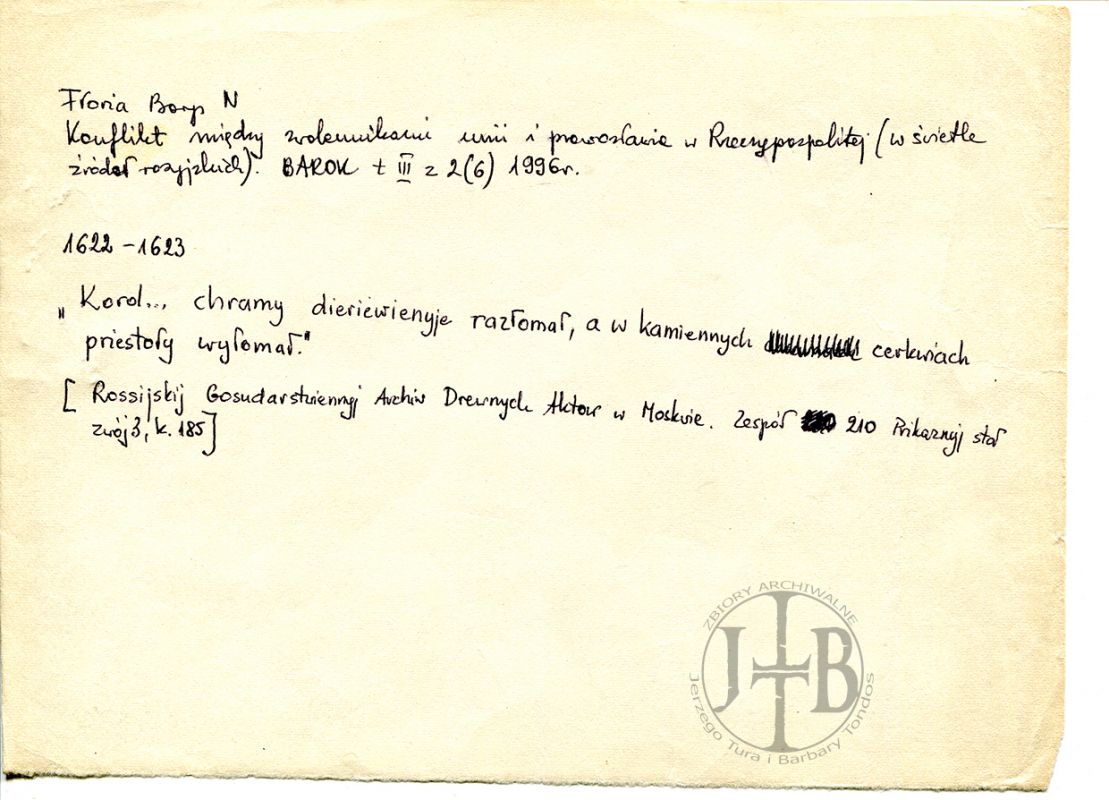 Floria Borys N
Konflikt między zwolennikami unii i prawosławia w Rzeczypospolitej (w świetle
źródeł rosyjskich). BAROK t III z 2(6) 1996r.
1622 - 1623
"Korol... chramy dieriewienyje razłomał, a w kamiennych cerkwiach
priestoły wyłomał."
[Rossijskij Gosudarstwiennyj Archiw Drewnych Aktow w Moskwie. Zespół 210 Prikaznyj stoł
zwój 3, k. 185]
ZBIORY ARCHIWALNE
J B
Jerzego Tura i Barbary Tondos